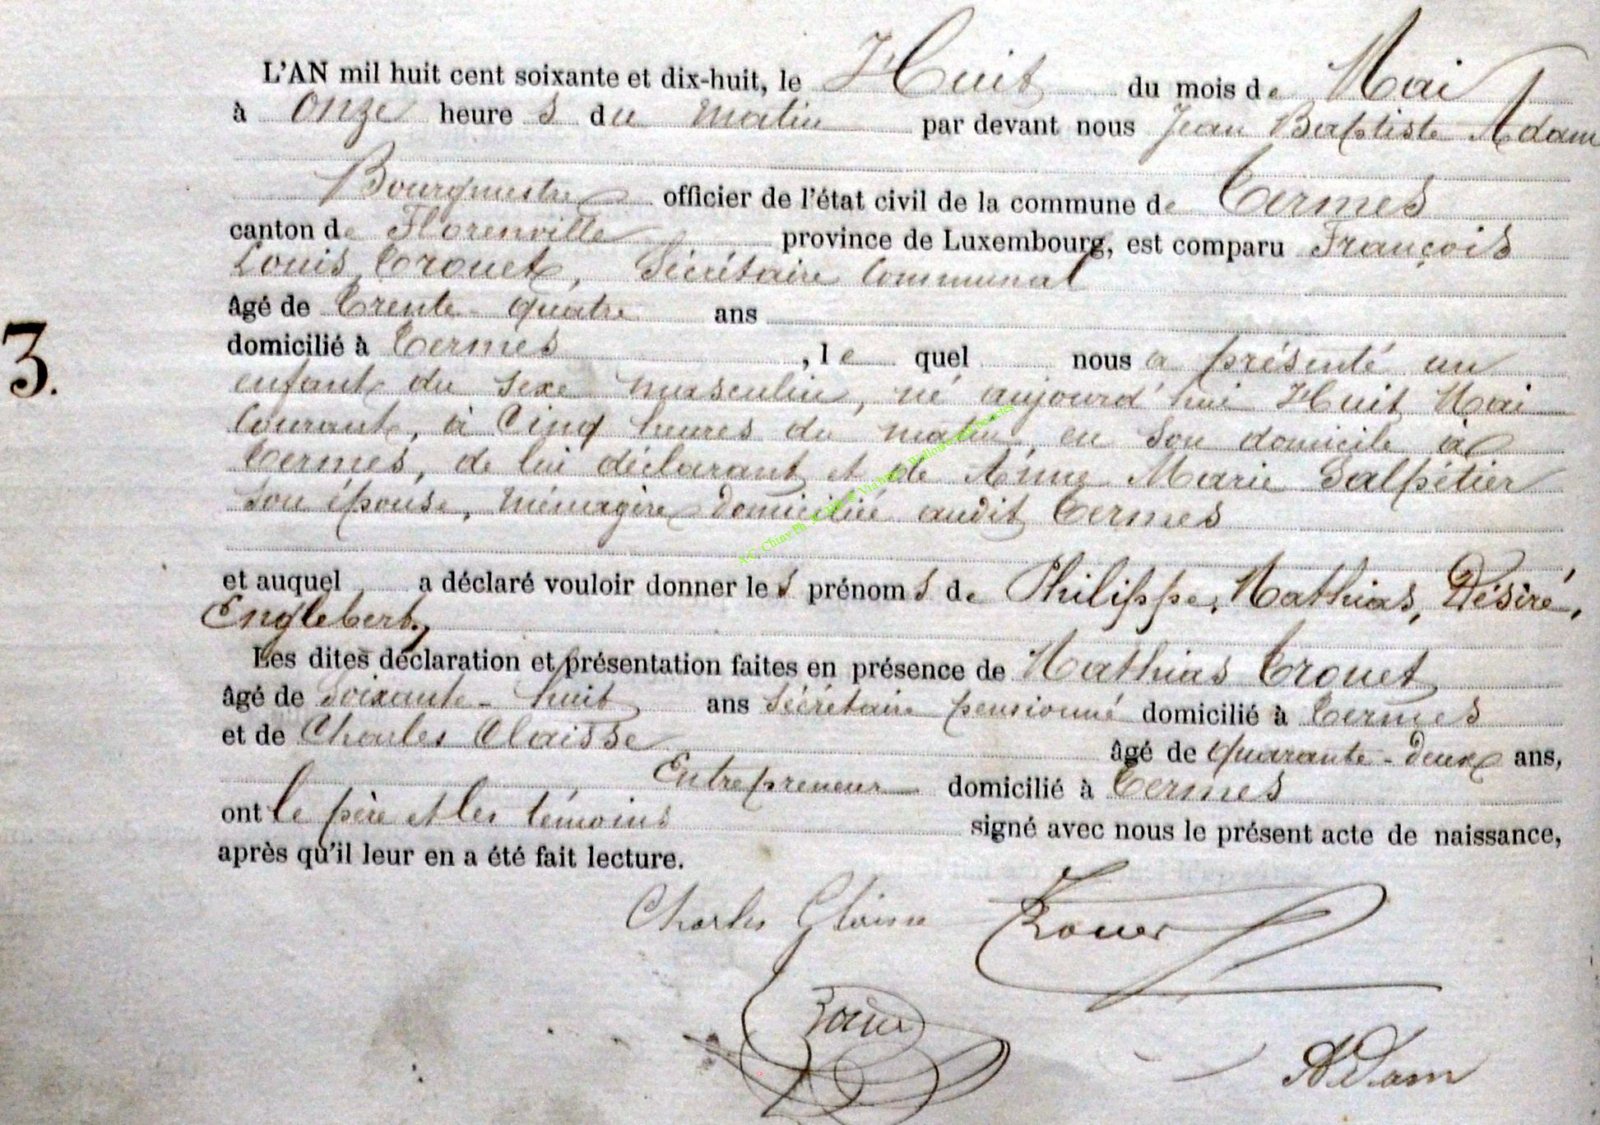 L'AN mil huit cent soixante et dix-huit, le Huit du mois de Mai
à onze heures du matin par devant nous Jean Baptiste Adam
Bourgmestre officier de l'état civil de la commune de Termes
canton de Florenville province de Luxembourg, est comparu François
Louis Trouet, Sécrétaire Communal
âgé de Trente-quatre ans
domicilié à Termes, lequel nous a présenté un
3.
enfant du sexe masculin, né aujourd'hui Huit Mai
Courant, à Cinq heures du matin, en son domicile à
Termes, de lui déclarant et de Anne Marie Salpétier
son épouse, ménagère domiciliée audit Termes
et auquel a déclaré vouloir donner les prénoms de Philippe, Mathias, Désiré,
Englebert,
Les dites déclaration et présentation faites en présence de Mathias Trouet
âgé de Soixante-huit ans Sécrétaire pensionné domicilié à Termes
et de Charles Claisse âgé de quarante-deux ans,
Entrepreneur domicilié à Termes
ont le père et les témoins signé avec nous le présent acte de naissance,
après qu'il leur en a été fait lecture.
Charles Trouet
Adam